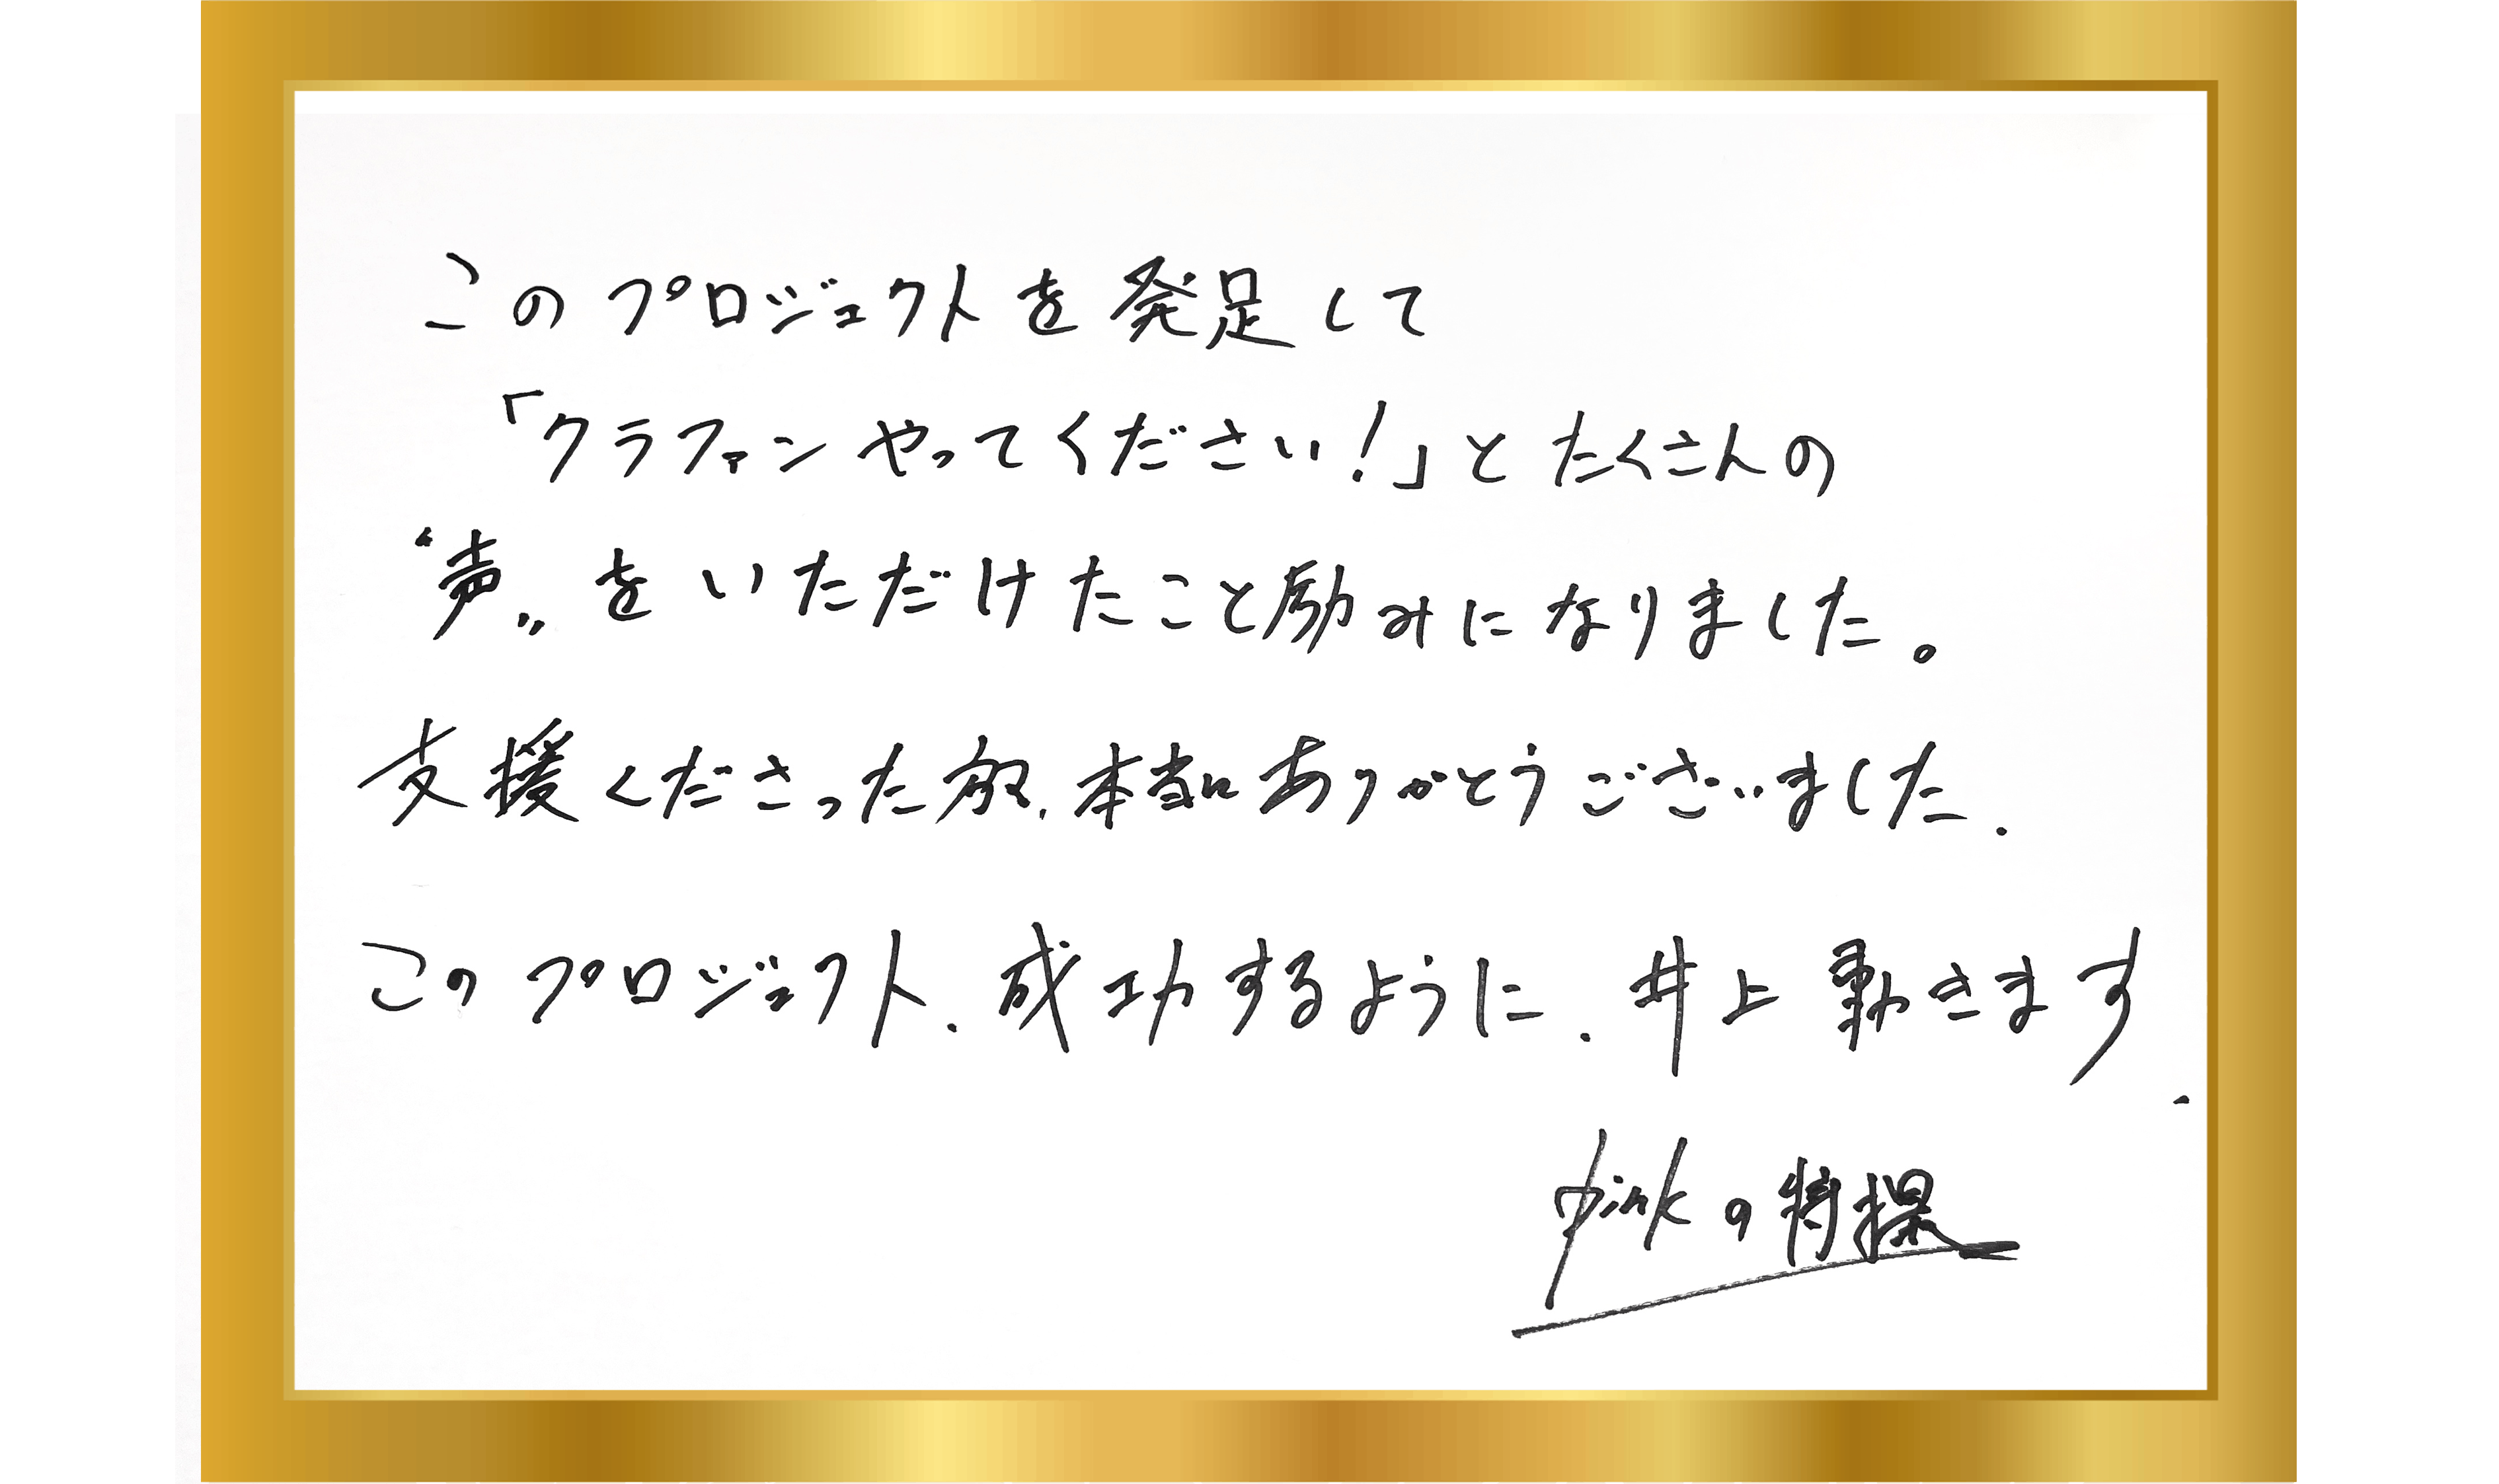 このプロジェクトを発足して
「クラファンやってください!」とたくさんの
“声„をいただけたこと励みになりました。
支援くださった方々、本当にありがとうございました.
このプロジェクト、成功するように、井上動きます.
pinkの特撮